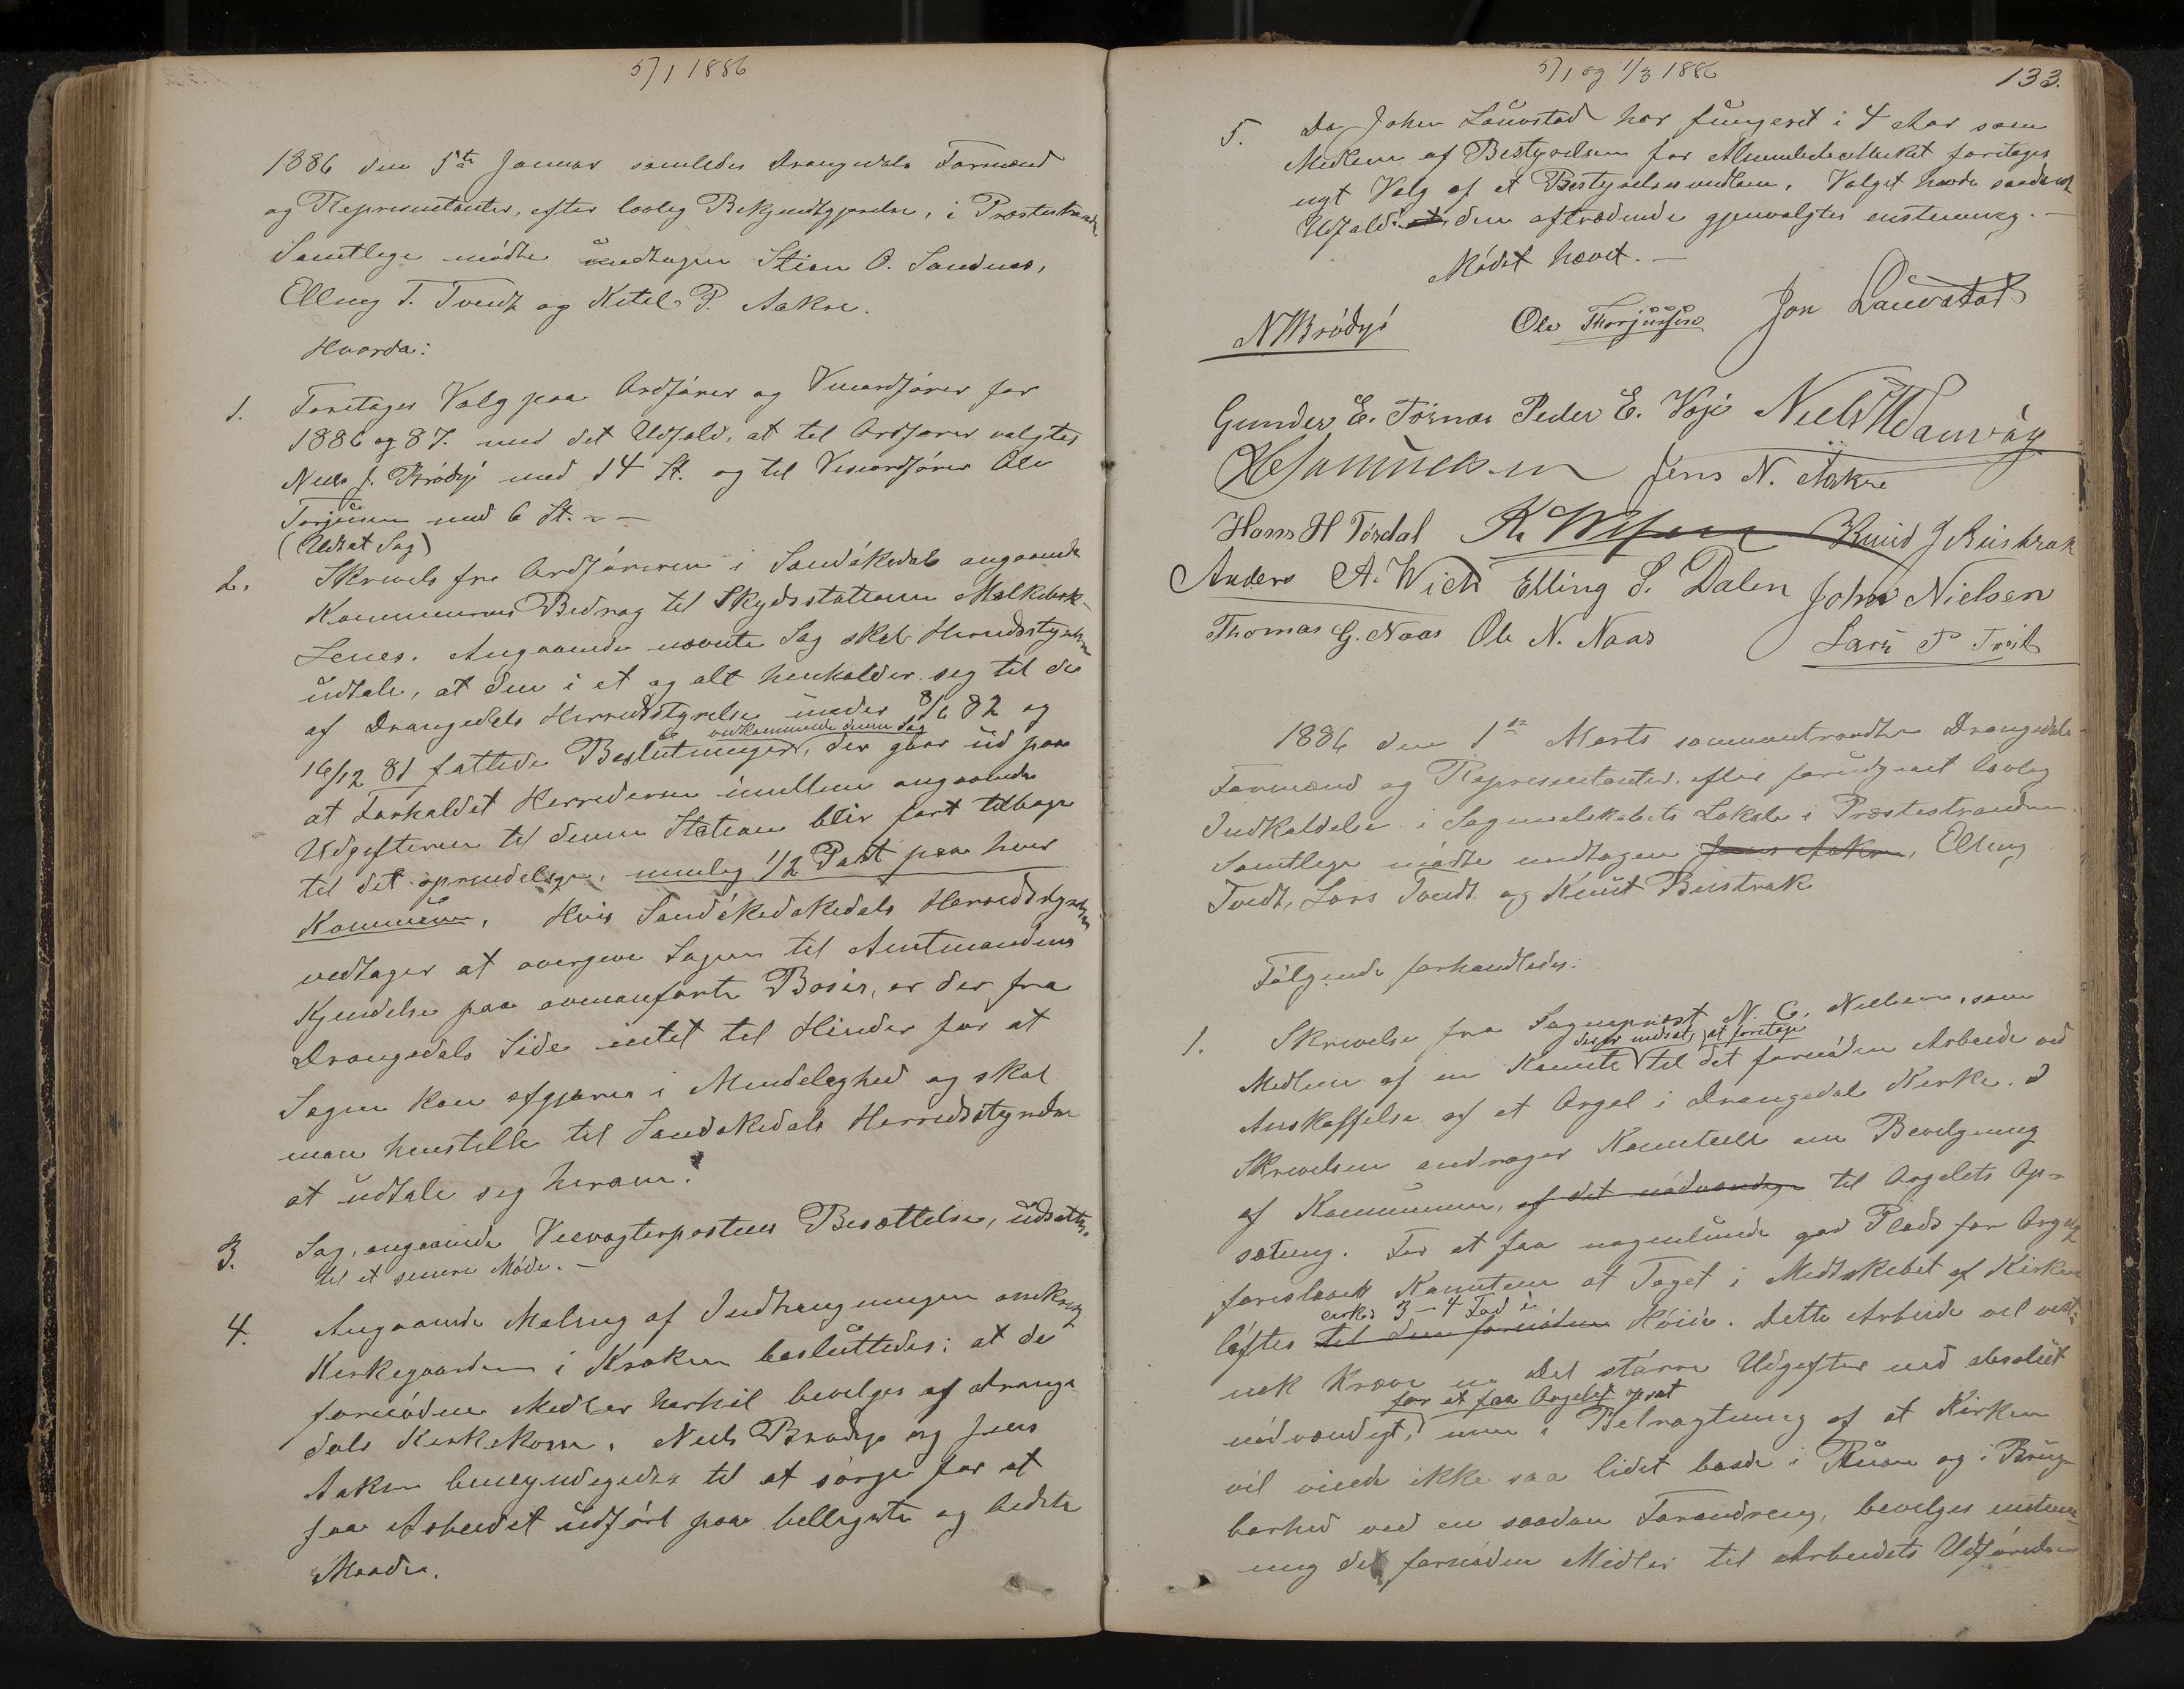 5/1 1886
1886 den 5te Januar samledes Drangedals Formænd
og Repræsentanter, efter lovlig Bekjendtgjørelse, i Præstestranden
Samtlige mødte undtagen Stian O. Sandnes,
Elling T. Tvedt og Ketil P. Aakre.
Hvorda:
1. Foretages Valg paa Ordfører og Viceordfører for
1886 og 87. med det Udfald, at til Ordfører valgtes
Niels J. Brødsjø med 14 St. og til Viceordfører Ole
Torjusen med 6 St. –
(Udsat Sag)
2. Skrivels fra Ordføreren i Sandøkedal angaaende
Kommunens Bidrag til Skydsstationen Melkebæk-
Lenes. Angaaende nævnte Sag skal Herredsstyrelsen
udtale, at den i et og alt henholder sig til de
af Drangedals Herredsstyrelse under 8/6 82 og
vedkommende denne Sag
16/12 81 fattede Beslutninger, der gaar ud paa
at Forholdet Herrederne imellem angaaende
Udgifterne til denne Station blir ført tilbage
til det oprindelige, nemlig 1/2 Part paa hver
Kommune. Hvis Sandøkedakedals Herredsstyrelsen
vedtager at overgive Sagen til Amtmandens
Kjendelse paa ovenanførte Basis, er der fra
Drangedals Side intet til Hinder for at
Sagen kan afgjøres i Mindelighed og skal
man henstille til Sandøkedals Herredsstyrelse
at udtale sig herom.
3. Sag, angaaende Veivogterpostens Besættelse, udsattes
til et senere Møde. –
4. Angaaende Maling af Indhegningen omkring
Kirkegaarden i Kroken besluttedes: at de
fornødne Midler hertil bevilges af Drange
dals Kirkekasse. Niels Brødsjø og Jens
Aakre bemyndigedes til at sørge for at
faa Arbeidet udført paa billigste og bedste
Maade.
5/1 og 1/3 1886
133.
5. Da John Lauvstad har fungeret i 4 Aar som
Medlem af Bestyrelsen for Almindeligheden foretages
nyt Valg af et Bestyrelsesmedlem. Valget havde saadant
Udfald: at den aftrædende gjenvalgtes enstemmig. –
Mødet hævet. –
N Brødsjø Ole Thorjussen Jon Lauvstad
Gunder E. Tørnes Peder E. Vøje Niels
Jens N. Aakre
Hans H Tørdal Knud J Bustrak
Anders A. Wich Elling S. Dalen John Nielsen
Thomas G. Naas Ole N. Naas Lars T
1886 den 1ste Marts sammentraadte Drangedals
Formænd og Repræsentanter. efter forudgaaet lovlig
Indkaldelse i Sogneselskabets Lokale i Præstestranden
Samtlige mødte undtagen Jens Aakre, Elling
Tvedt, Lars Tvedt og Knut Bustrak
Følgende forhandledes:
1. Skrivelse fra Sogneprest N. C. Nielsen, som
der er nedsat, at foretage
Medlem af en Komite til det fornødne Arbeide ved
Anskaffelse af et Orgel i Drangedals Kirke. I
Skrivelsen andrager Komiteen om Bevilgning
af Kommunen, af det nødvendige til Orgelets Op-
sætning. For at faa nogenlunde god Plads for Orgelet
foreslaar Komiteen at Taget i Midtskibet af Kirken
cirka 3–4 Fod i
løftes til den fornødne Høide. Dette Arbeide vil vist-
nok kræve en Del større Udgifter end absolut
for at faa Orgelet opsat
nødvendigt, men i Betragtning af at Kirken
vil vinde ikke saa lidet baade i Rum og i Brug-
barhed ved en saadan Forandring, bevilges enstem-
mig de fornødne Midler til Arbeidets Udførelse